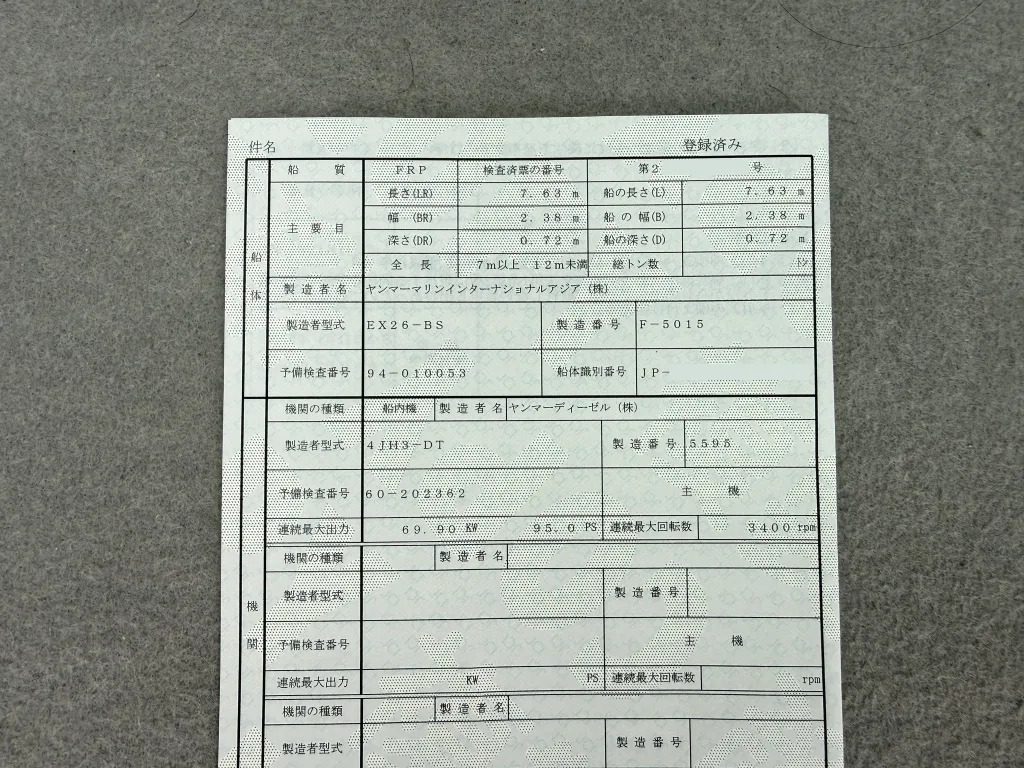 件名 登録済み
船質 FRP 検査済票の番号 第2 号
船体
主要目 長さ(LR) 7.63 m 船の長さ(L) 7.63 m
幅 (BR) 2.38 m 船の幅(B) 2.38 m
深さ(DR) 0.72 m 船の深さ(D) 0.72 m
全長 7m以上 12m未満 総トン数 トン
製造者名 ヤンマーマリンインターナショナルアジア(株)
製造者型式 EX26-BS 製造番号 F-5015
予備検査番号 94-010053 船体識別番号 JP-
機関
機関の種類 船内機 製造者名 ヤンマーディーゼル(株)
製造者型式 4JH3-DT 製造番号 5595
予備検査番号 60-202362 主機
連続最大出力 69.90 KW 95.0 PS 連続最大回転数 3400 rpm
機関の種類 製造者名
製造者型式 製造番号
予備検査番号 主機
連続最大出力 KW PS 連続最大回転数 rpm
機関の種類 製造者名
製造者型式 製造番号